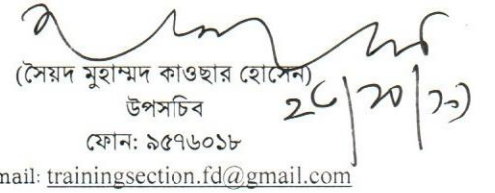 (সৈয়দ মুহাম্মদ কাওছার হোসেন)
উপসচিব
ফোন: ৯৫৭৬০১৮
mail: trainingsection.fd@gmail.com